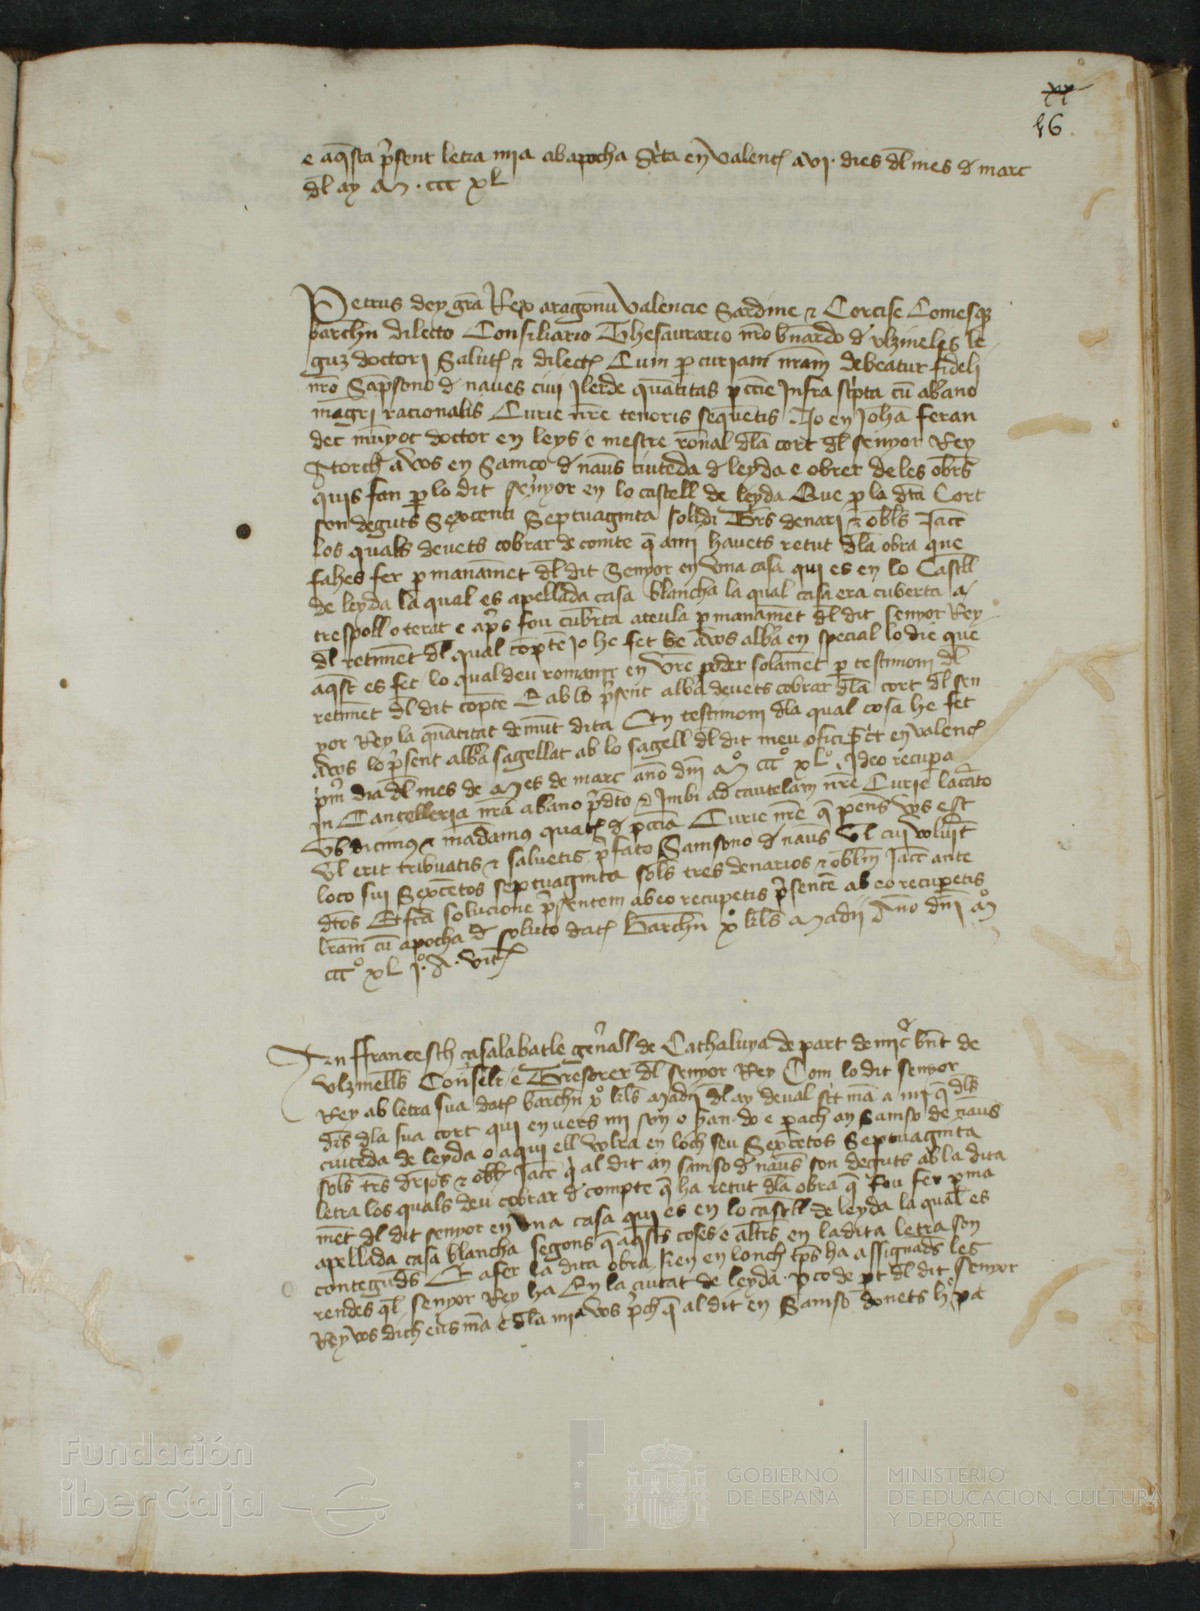 xx
16.
e aq̄sta p̄sent letra mia ab apocha sc̄ta en valenc̄ a vj. dies dl̄ mes d̄ marc
dl̄ ay M. ccc xL
Petrus dey gr̄a Rex aragonū Valencie Sardinie ⁊ Corcise Comesq̄
barchn̄ dilecto Consiliario Thesaurario nr̄o bn̄ardo d̄ ulzinelis le
guz doctori Salut̄ ⁊ dilect̄ Cum p curiam nr̄am debeatur fideli
nr̄o Sap̄sono d̄ naves civi Jlerde quātitas pcc̄ie Infra sc̄pta cū albano
māgri racionalis Curie nr̄e tenoris seq̄uetis Jo en Johā feran
dec mūyoc doctor en leys e mestre ronāl dl̄a cort dl̄ senyor Rey
Atorch avos en Samco d̄ nav̄s ciuteda d̄ leyda e obrer de les obr̄s
quis fan p lo dit senyor en lo castell de leyda Que p la dt̄a Cort
son deguts Sexcenti Septuaginta solidi Tr̄s denari ⁊ obl̄s Jacc̄
los quals devets cobrar de comte q̄ ami havets retut dl̄a obra que
fahes fer p manamēt dl̄ dit Senyor en vna casa qui es en lo Castll̄
de leyda la qual es apellada casa blancha la qual casa era cuberta a
trespoll o terat e ap̄s fou cub̄rta ateula p manamēt dl̄ dit senyor Rey
dl̄ retimēt dl̄ qual cōpte Jo he fet be avos albā en special lo die que
aq̄st es fet lo qual deu romanir en vr̄e poder solamēt p testimoni dl̄
retimēt dl̄ dit cōpte E ab lo p̄sent albā devets cobrar dl̄a cort dl̄ sen
yor Rey la quātitat demūt dita En testimoni dl̄a qual cosa he fet
avos lo p̄sent albā sagellat ab lo sagell dl̄ dit meu ofici sc̄t en valenc̄
pm̄ dia dl̄ mes de Mes de marc ano dn̄i M° ccc° xL°. Jdeo recupa
in Cancelleria nr̄a albano p̄dc̄to ⁊ Jmbi ad cautelam nr̄e Curie lac̄ato
Vb dicimus ⁊ mādamus quat̄ d̄ pccīa Curie nr̄e q̄ penes vos est
vl̄ erit tribuatis ⁊ salvetis p̄fato Samsono d̄ nav̄s vl̄ cui voluit̄
loco sui Sexcētos septuaginta sol̄s tres denarios ⁊ obl̄m Jacc̄ ante
dc̄os Et fc̄a solucione p̄sentem ab eo recupetis p̄sentē ab eo recupetis
lr̄am cū apocha d̄ soluto dat̄ barchn̄ x° kl̄s Madij Ano dn̄i M°
ccc° xL j°. A. vic̄
En ffrancesch casala batle gen̄all de Cathaluya de part de mic̄ bn̄t de
ulzinells Consellr̄ e Tresorer dl̄ senyor Rey Com lo dit senyor
Rey ab letra sua dat̄ barchn̄ x° kl̄s Madij dl̄ ay deval sc̄t mā a mi q̄ dl̄s
drs̄ dl̄a sua cort qui en vers mi son o han do e pach an Samso de nav̄s
ciuteda de leyda o aqui ell volra en loch seu Sexcētos Septuaginta
sol̄s tr̄s drīos ⁊ obl̄ Jacc̄ q̄ al dit an samso d̄ nav̄s son deguts ab la dita
letra los quals deu cobrar d̄ compte q̄ ha retut dl̄a obra q̄ fou fer p ma
mēt dl̄ dit senyor en vna casa qui es en lo castll̄ de leyda la qual es
apellada casa blancha segons q̄ aq̄sts coses e altr̄s en la dita letra son
contegudes Et a fer la dita obra Ken en lonch tp̄s ha assignades les
rendes ql̄ senyor Rey ha En la ciutat de leyda. pco de pt dl̄ dit senyor
Rey vos dich e us mā e dl̄a mia vos p̄ch q̄ al dit en Samso donets
Fundación
iberCaja
GOBIERNO
DE ESPAÑA
MINISTERIO
DE EDUCACIÓN, CULTURA
Y DEPORTE